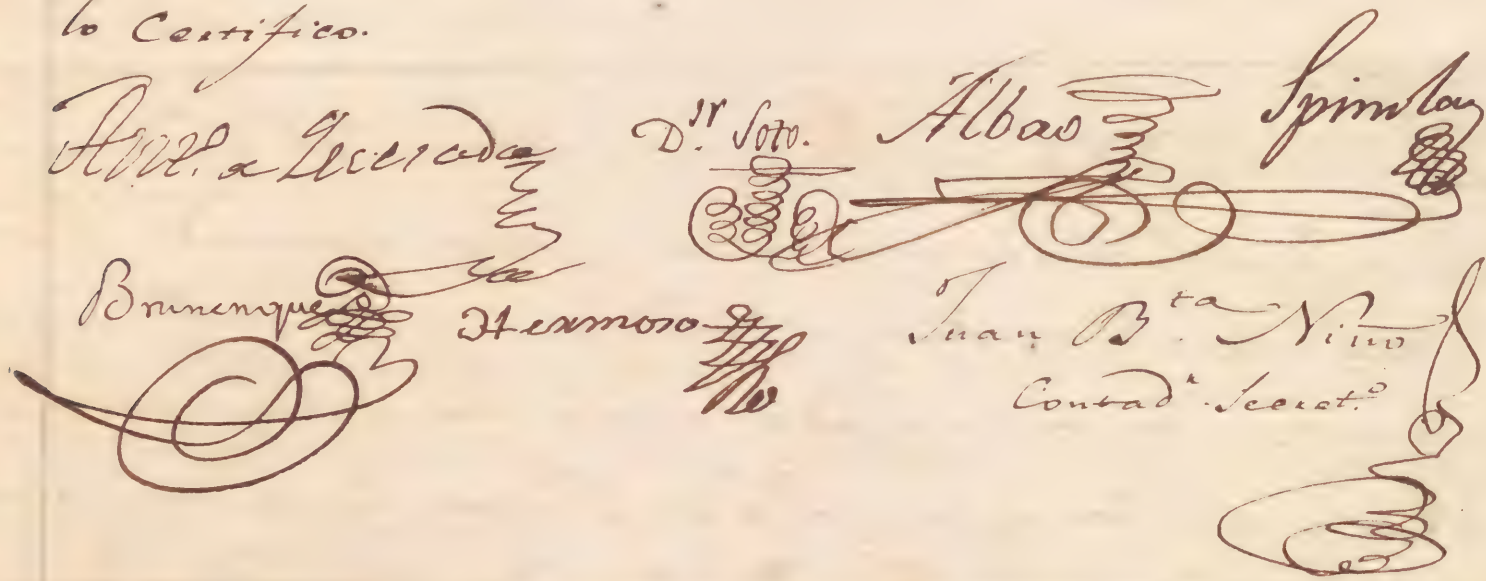 lo Certifico.
Ant.º a Quesada
D.ʳ Soto.
Albao
Spinola
Brunenque
Hermoso
Juan B.ᵗᵃ Nino
Contad.ʳ Secret.º